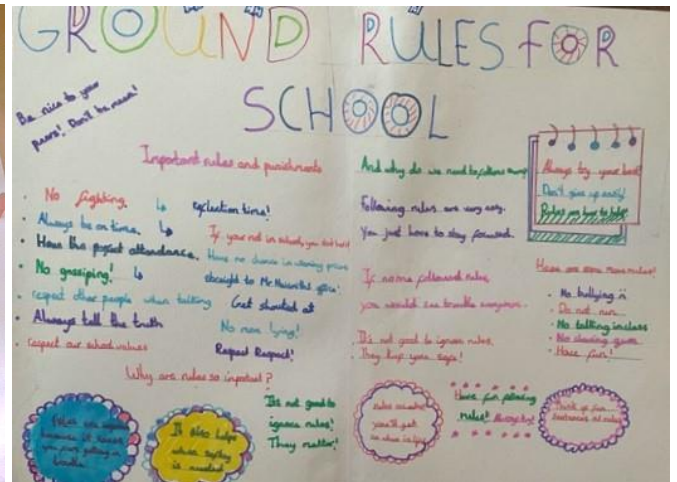 GROUND RULES FOR
SCHOOL
Be nice to your
peers! Don't be mean!
Important rules and punishments
No fighting. ↳ exclusion time!
Always be on time. ↳ If your not in school, you
Have the perfect attendance. Have no chance in winning prizes
No gossiping! ↳ straight to Mr office!
respect other people when talking Get shouted at
Always tell the truth No more lying!
respect our school values Respect Respect!
Why are rules so important?
because it saves
you from getting in
trouble
It also helps
when
is needed
It's not good to
ignore rules!
They matter!
And why do we need to follow
Following rules are very easy.
You just have to stay focused.
If no one followed rules,
you would see trouble everywhere.
It's not good to ignore rules.
They keep you safe!
Always try your best!
Don't give up easily!
Rules are here to help!
Here are some more rules!
No bullying
Do not run
No talking in class
No chewing gum
Have fun!
rules
you'll get
Have fun following
rules!
Think of
rules